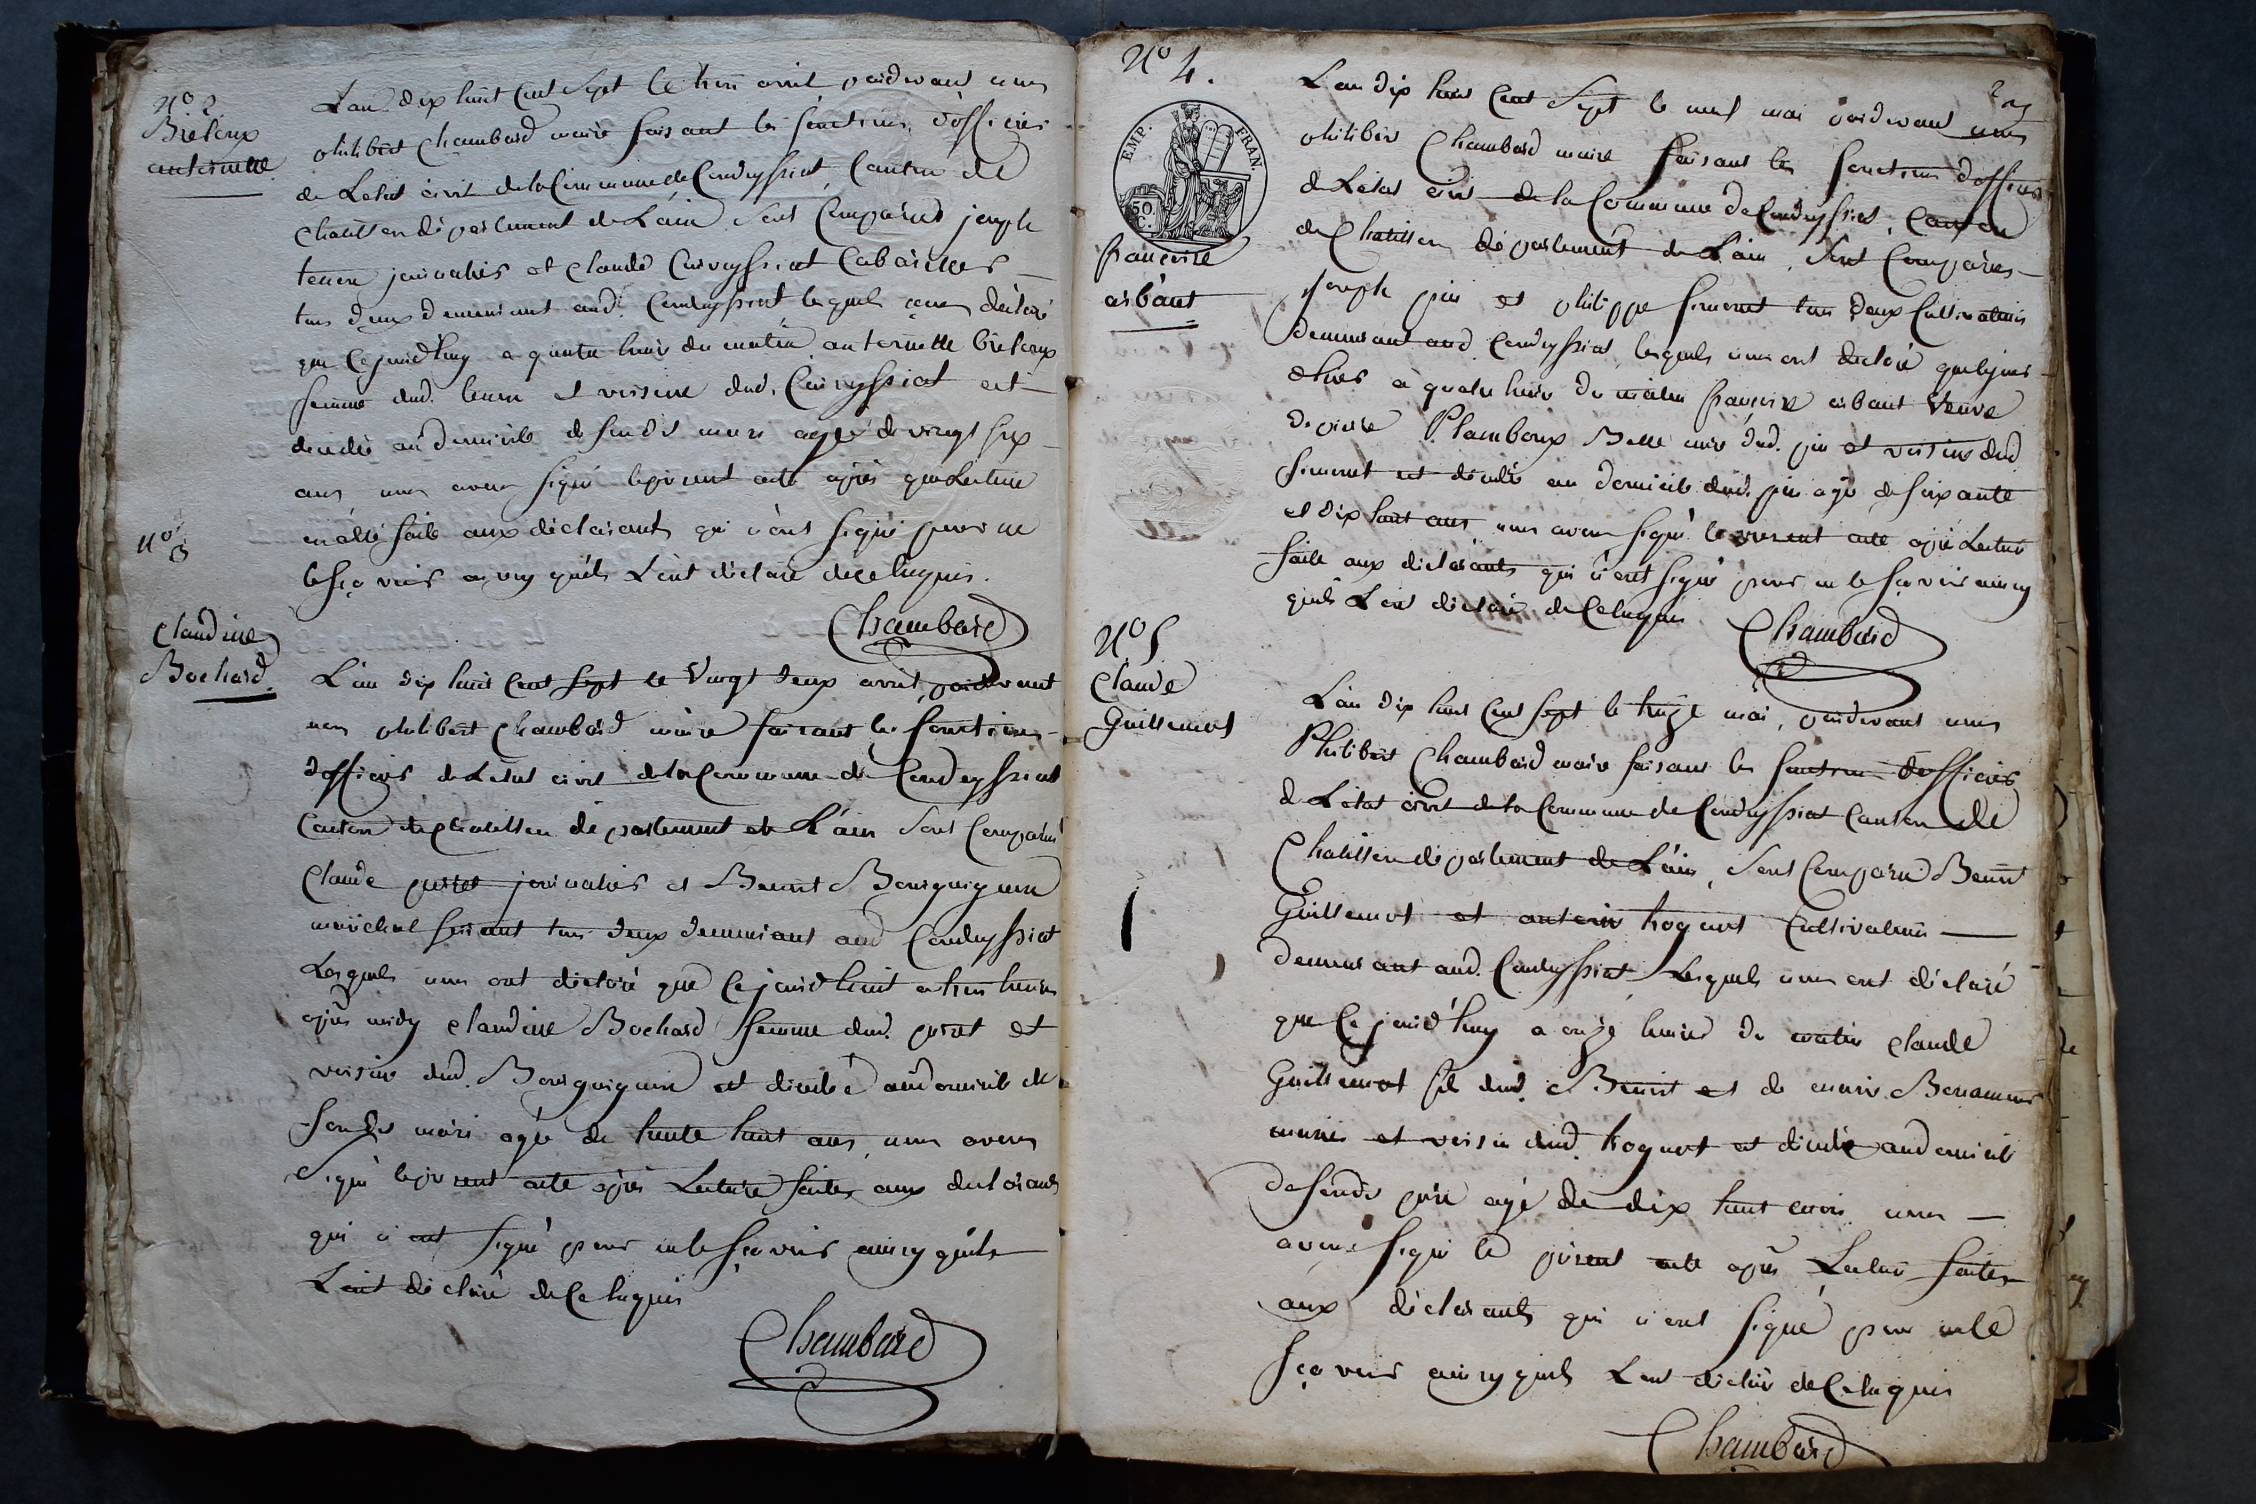 N.o 2
Bieloux
anternette
L'an dix huit cent sept le trois avril pardevant nous
philibert Chambard maire faisant les fonctions d'officier
de Letat civil de la Commune de Condeyssiat, Canton de
Chatillon département de L'ain sont Comparus joseph
journalier et Claude Curveyssiat Cabaretier
tous deux demeurant aud. Condeyssiat lesquels nous déclaré
que Cejourd'huy a quatre heures du matin anternette bieloux
femme dud. et voisine dud. Curveyssiat est
décédée au domicile de sondit mari agé de vingt six
ans nous avons signé le present acte après que Lecture
en a été faite aux déclarants qui n'ont signé pour ne
le sçavoir ainsy qu'ils L'ont déclaré de ce enquis.
Chambard
N.o 3
Claudine
Bochard
L'an dix huit Cent sept le Vingt deux avril, pardevant
nous philibert Chambard maire faisant les fonctions
d'officier de Letat civil de la Commune de Condeyssiat
Canton de Chatillon département de L'ain sont Comparus
Claude journalier et Benoit Bourguignon
maréchal ferrant tous deux demeurant aud Condeyssiat
Lesquels nous ont déclaré que Cejourd'huit a trois heures
après midy Claudine Bochard femme dud. et
voisine dud. Bourguignon est décédé au domicile de
sondit mari agée de trente huit ans, nous avons
signé le présent acte après Lecture faite aux declarants
qui n'ont signé pour ne le sçavoir ainsy qu'ils
L'ont déclaré de Ce enquis
Chambard
N.o 4.
EMP. FRAN.
50 C.
françoise
arbant
L'an dix huit Cent Sept le neuf mai pardevant nous
philibert Chambard maire faisant les fonctions d'officier
de Letat civil de la Commune de Condeyssiat, Canton
de Chatillon département de L'ain, sont Comparus
joseph pin et philippe simonet tous deux Cultivateurs
demeurant aud Condeyssiat, lesquels nous ont declaré que Cejour
d'hier a quatre heures du matin françoise arbant Veuve
de pierre Plamboux Belle mère dud. pin et voisine dud
simonet est décédé au domicile dud. pin agé de soixante
et dix huit ans, nous avons signé le present acte après Lecture
faite aux déclarants qui n'ont signé pour ne le sçavoir ainsy
qu'ils L'ont déclaré de Ce enquis
Chambard
N.o 5
Claude
Guillemot
L'an dix huit Cent sept le treize mai, pardevant nous
Philibert Chambard maire faisant les fonctions d'officier
de Létat civil de la Commune de Condeyssiat Canton de
Chatillon département de L'ain, sont Comparu Benoit
Guillemot et antoine Cultivateurs
demeurant aud. Condeyssiat Lesquels nous ont déclaré
que Cejourd'huy a onze heures du matin Claude
Guillemot fils dud. Benoit et de marie
mariés et voisin dud. est décédé au domicile
de sondit père agé de dix huit mois nous
avons signé le présent acte après Lecture faite
aux déclarants qui n'ont signé pour ne le
sçavoir ainsy qu'ils L'ont déclaré de Ce enquis
Chambard